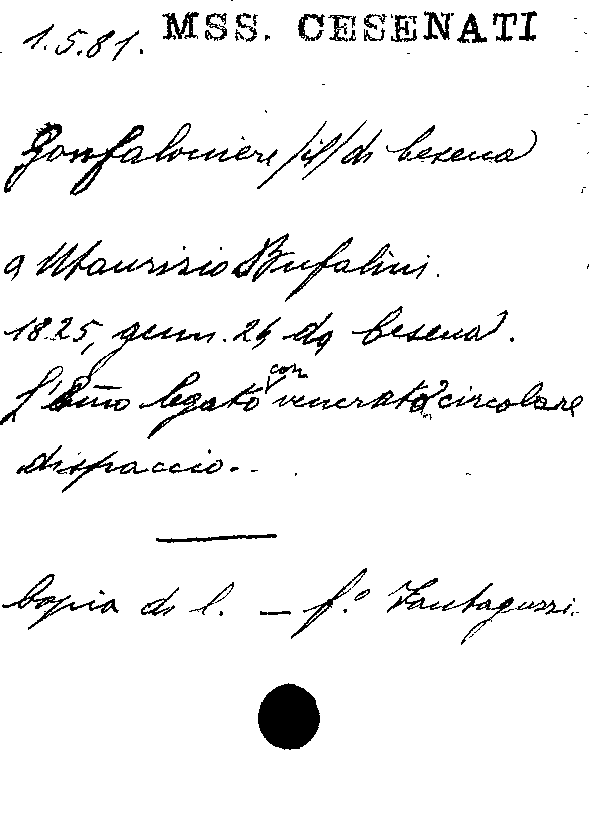 1.5.81. MSS. CESENATI
Gonfaloniere /il/ di Cesena
a Maurizio Bufalini.
1825, genn. 26 da Cesena.
L'Em̃o legato con venerato circolare
dispaccio..
Copia di l. — f.º Fantaguzzi.